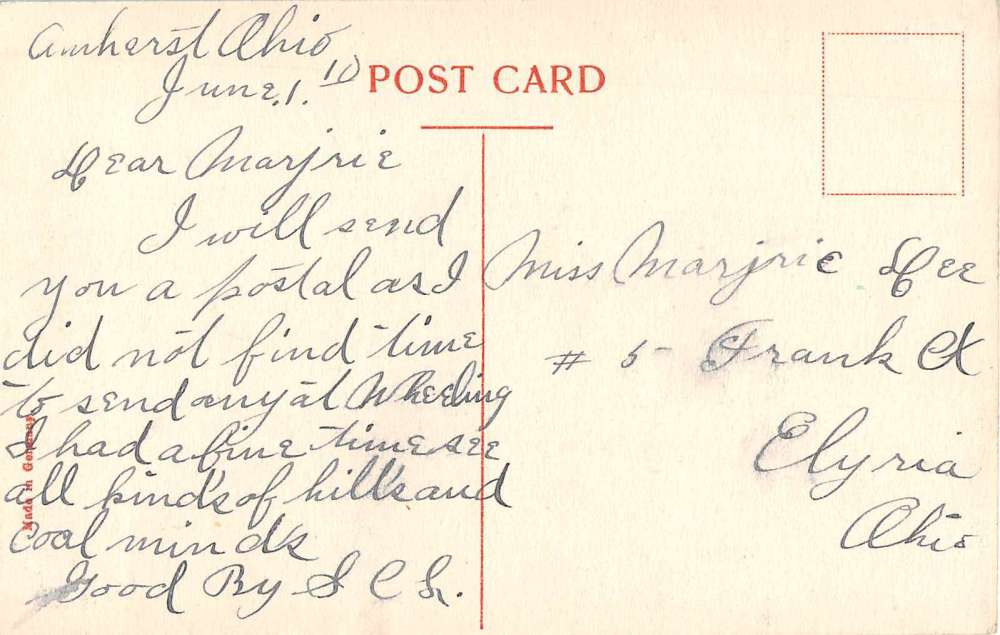 Amherst Ohio
June. 1. 10
POST CARD
Dear Marjrie
I will send
you a postal as I
did not find time
to send any at Wheeling
I had a fine time see
all kind's of hill's and
coal mind's
Good By S C L.
Made in Germany
Miss Marjrie Lee
# 5 Frank Ct
Elyria
Ohio